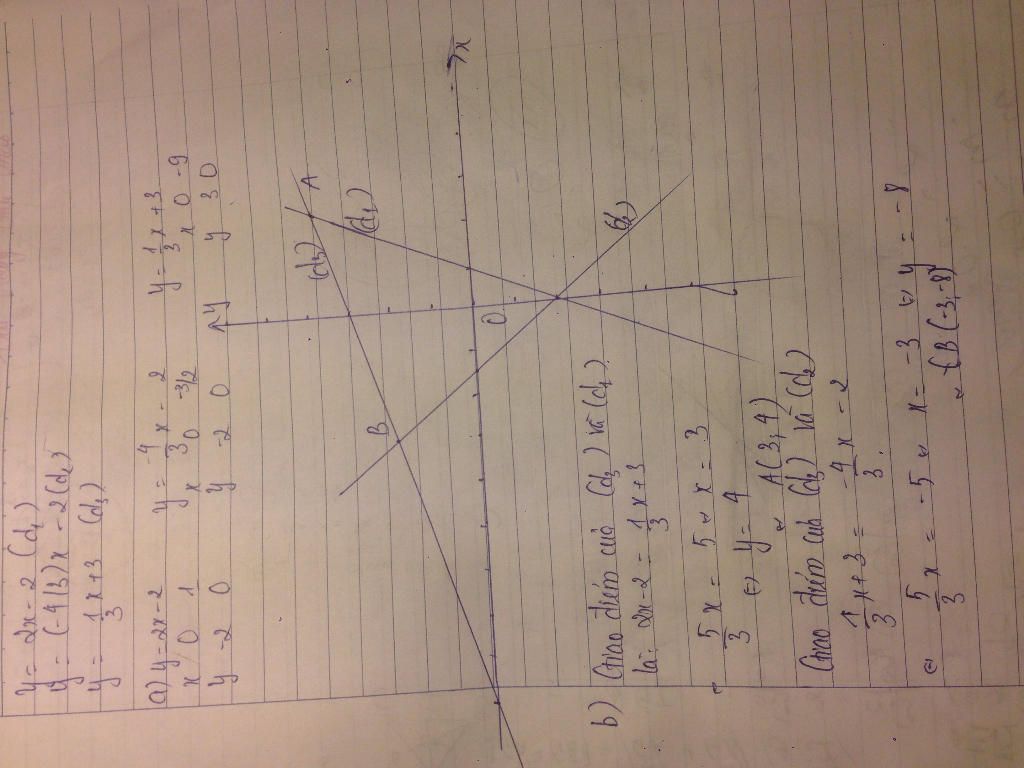 y = 2x - 2 (d₁)
y = (-4/3)x - 2 (d₂)
y = 1/3 x + 3 (d₃)
a) y = 2x - 2 y = -4/3 x - 2 y = 1/3 x + 3
x 0 1 x 0 -3/2 x 0 -9
y -2 0 y -2 0 y 3 0
y
(d₃) A
(d₁)
B
O
x
(d₂)
b) Giao điểm của (d₃) và (d₁)
là: 2x - 2 = 1/3 x + 3
5/3 x = 5 x = 3
⇔ y = 4
A(3, 4)
Giao điểm của (d₃) và (d₂)
1/3 x + 3 = -4/3 x - 2
⇔ 5/3 x = -5 x = -3 y = -8
B(-3, -8)